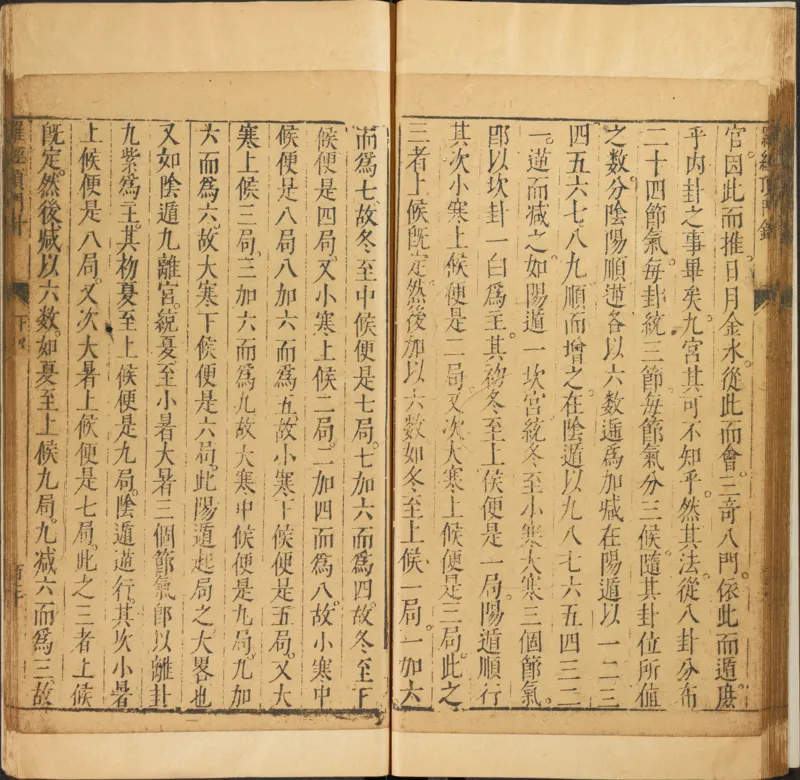 官因此而推日月金水從此而會三奇八門依此而遁庶
乎內卦之事畢矣九宮其可不知乎然其法從八卦分布
二十四節氣每卦統三節每節氣分三候隨其卦位所值
之數分陰陽順逆各以六數遁為加減在陽遁以一二三
四五六七八九順而增之在陰遁以九八七六五四三二
一逆而減之如陽遁一坎宮統冬至小寒大寒三個節氣
即以坎卦一白為主其初冬至上候便是一局陽遁順行
其次小寒上候便是二局又次大寒上候便是三局此之
三者上候旣定然後加以六數如冬至上候一局一加六
而為七故冬至中候便是七局七加六而為四故冬至下
候便是四局又小寒上候二局二加四而為八故小寒中
候便是八局八加六而為五故小寒下候便是五局又大
寒上候三局三加六而為九故大寒中候便是九局九加
六而為六故大寒下候便是六局此陽遁起局之大畧也
又如陰遁九離宮統夏至小暑大暑三個節氣即以離卦
九紫為主其初夏至上候便是九局陰遁逆行其次小暑
上候便是八局又次大暑上候便是七局此之三者上候
旣定然後減以六數如夏至上候九局九减六而為三故
羅經頂門針
下